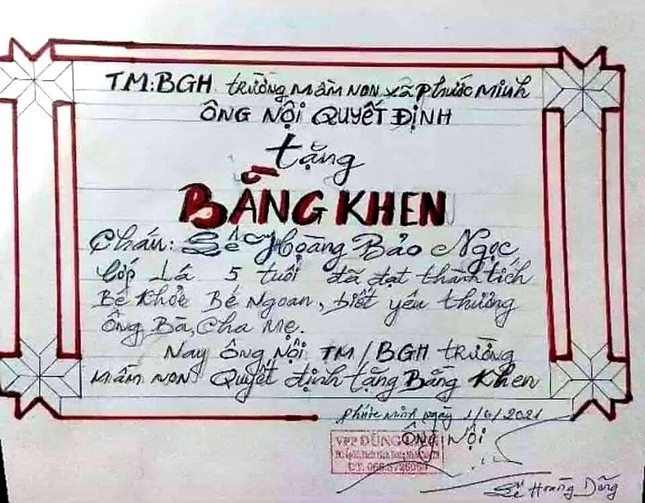 TM:BGH TRƯỜNG MẦM NON XÃ PHƯỚC MINH
ÔNG NỘI QUYẾT ĐỊNH
tặng
BẰNG KHEN
Cháu: Hoàng Bảo Ngọc
Lớp Lá 5 tuổi đã đạt thành tích
Bé Khỏe Bé Ngoan, biết yêu thương
Ông Bà, Cha Mẹ.
Nay Ông Nội TM/BGH TRƯỜNG
MẦM NON Quyết định tặng Bằng Khen
Phước Minh ngày 1/6/2021
ÔNG NỘI
VPP DŨNG
Hoàng Dũng